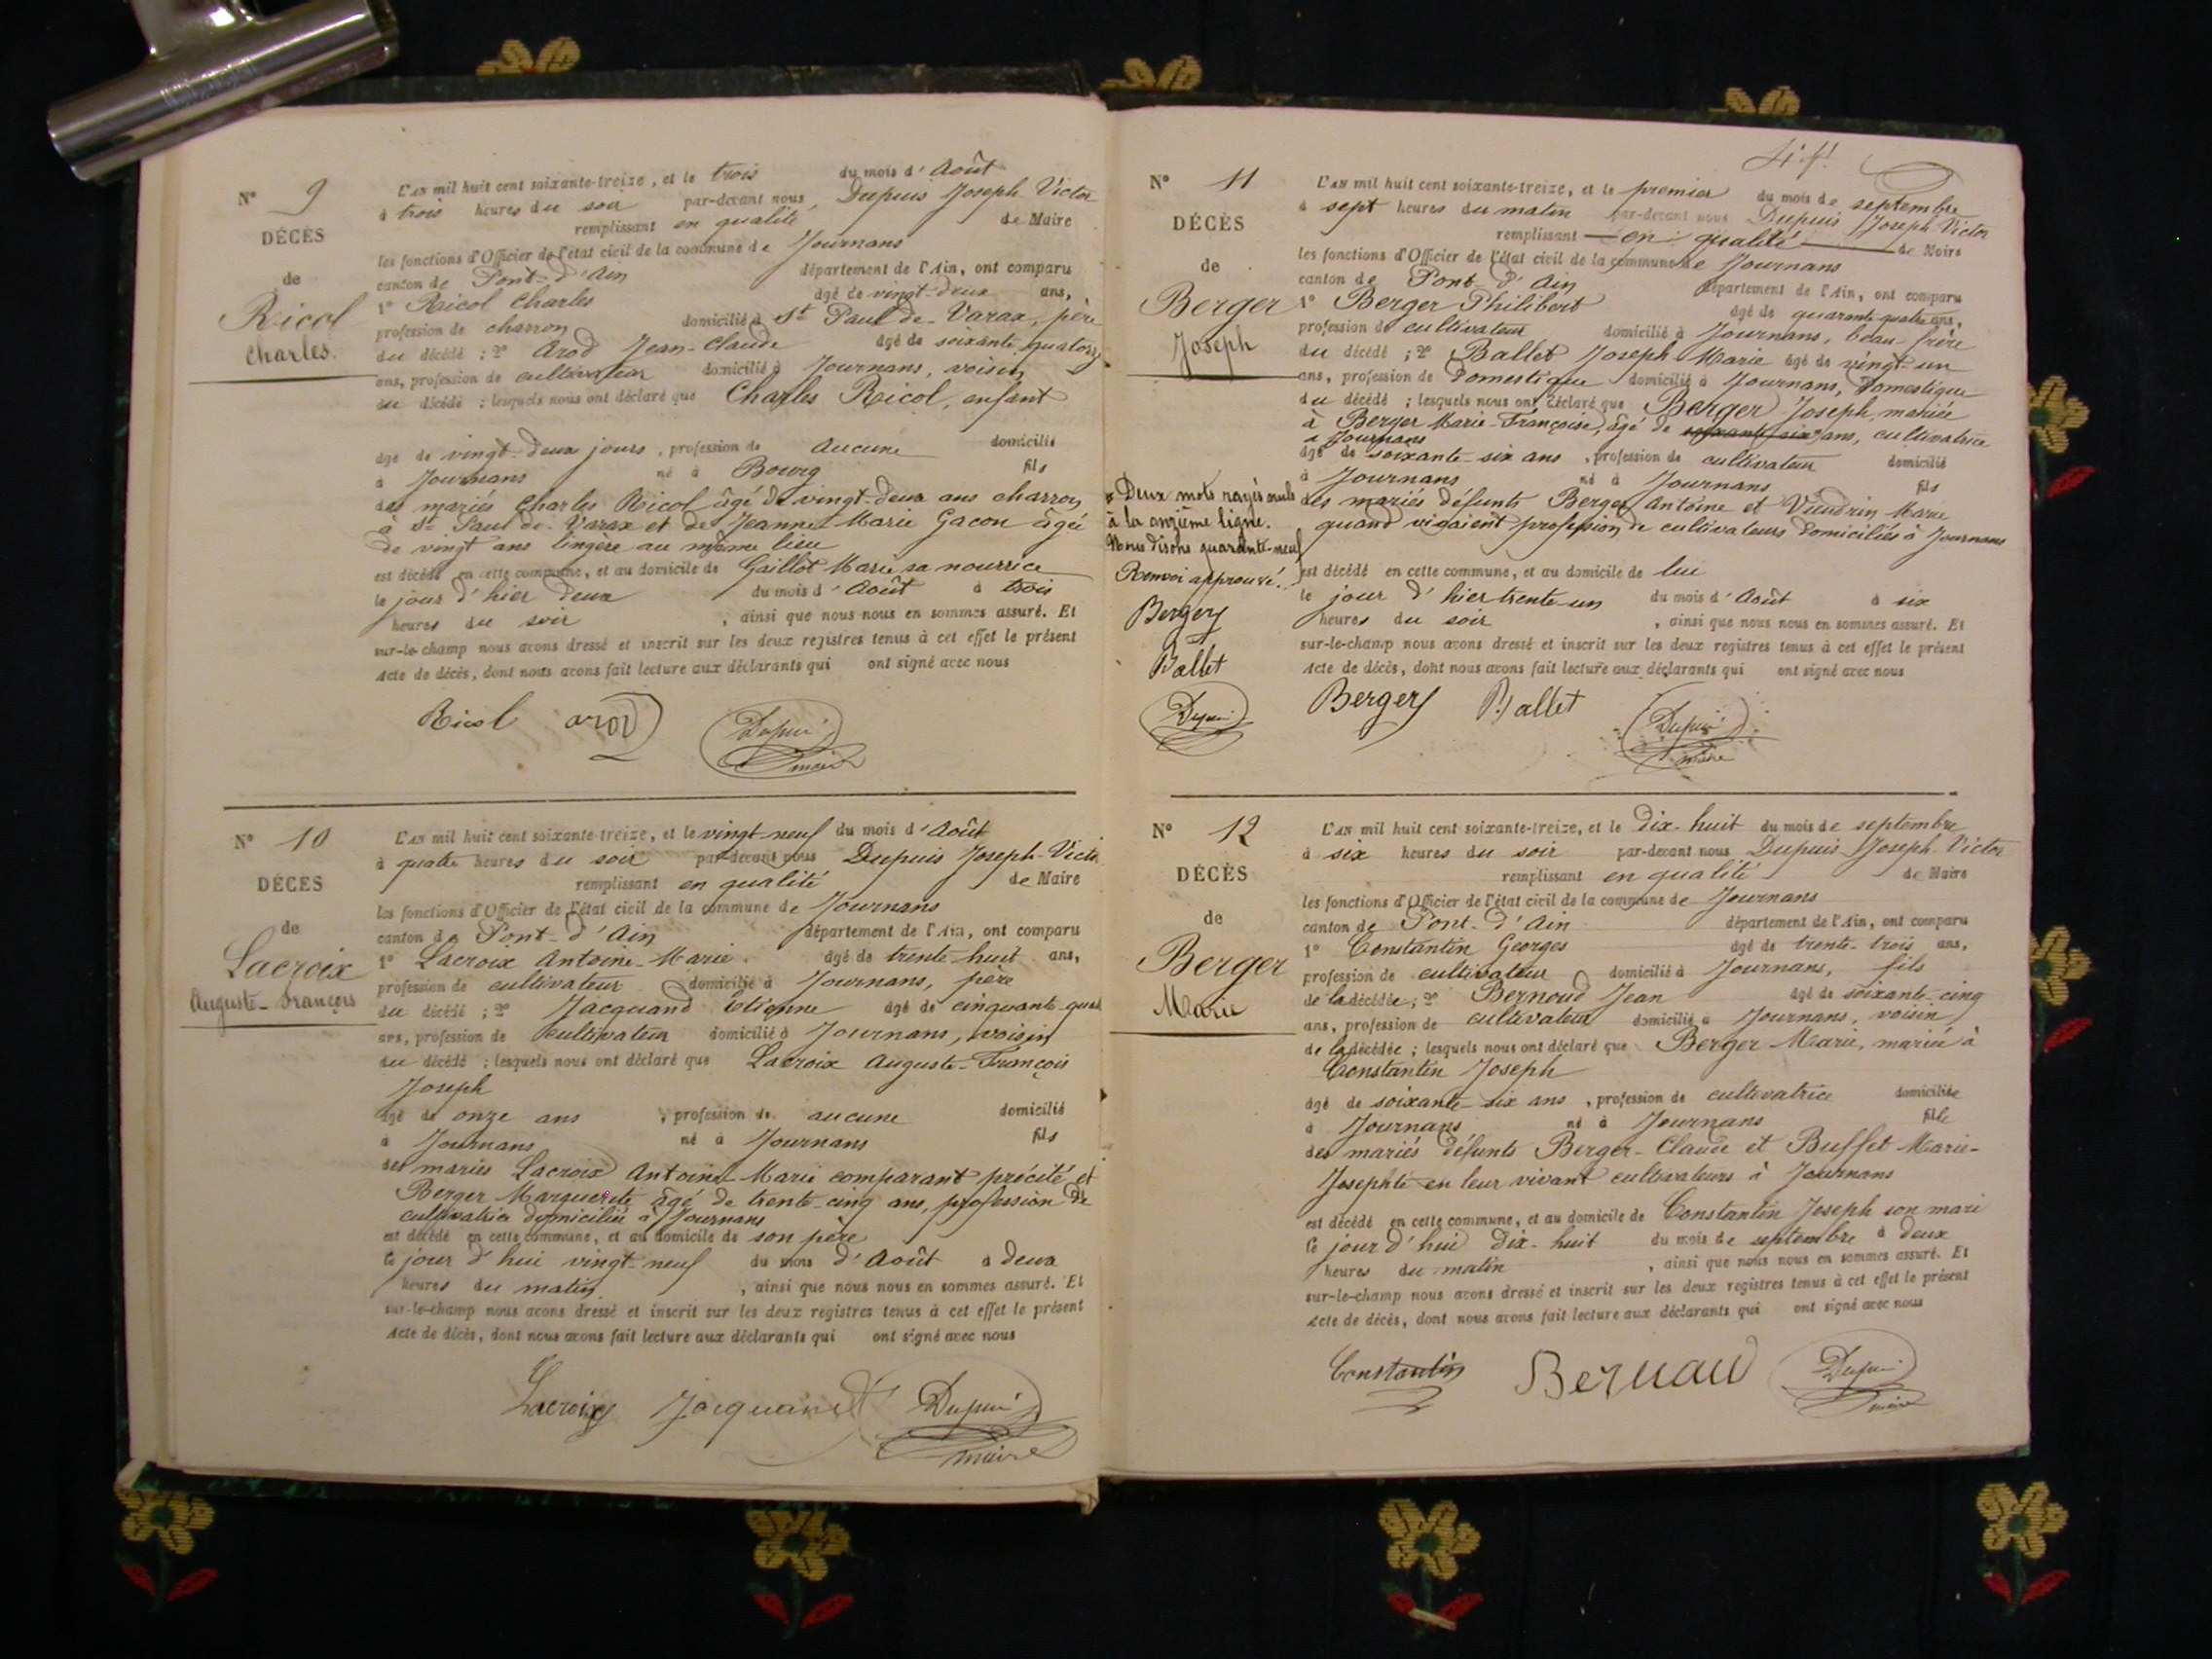 N° 9
DÉCÈS
de
Ricol
Charles.
L'AN mil huit cent soixante-treize, et le trois du mois d'Août
à trois heures du soir par-devant nous, Dupuis Joseph Victor
remplissant en qualité de Maire
les fonctions d'Officier de l'état civil de la commune de Journans
canton de Pont-d'Ain département de l'Ain, ont comparu
1° Ricol Charles âgé de vingt-deux ans,
profession de charron domicilié à St Paul-de-Varax, père
du décédé ; 2° Arod Jean-Claude âgé de soixante quatorze
ans, profession de cultivateur domicilié à Journans, voisin
du décédé ; lesquels nous ont déclaré que Charles Ricol, enfant
âgé de vingt-deux jours, profession de aucune domicilié
à Journans né à Bourg fils
des mariés Charles Ricol âgé de vingt-deux ans charron
à St Paul-de-Varax et de Jeanne-Marie Gacon âgée
de vingt ans lingère au même lieu
est décédé en cette commune, et au domicile de Gaillot Marie sa nourrice
le jour d'hier deux du mois d'Août à trois
heures du soir, ainsi que nous nous en sommes assuré. Et
sur-le-champ nous avons dressé et inscrit sur les deux registres tenus à cet effet le présent
Acte de décès, dont nous avons fait lecture aux déclarants qui ont signé avec nous
Ricol arod Dupui
maire
N° 10
DÉCÈS
de
Lacroix
Auguste-François
L'AN mil huit cent soixante-treize, et le vingt-neuf du mois d'Août
à quatre heures du soir par-devant nous Dupuis Joseph-Victor
remplissant en qualité de Maire
les fonctions d'Officier de l'état civil de la commune de Journans
canton de Pont-d'Ain département de l'Ain, ont comparu
1° Lacroix Antoine-Marie âgé de trente-huit ans,
profession de cultivateur domicilié à Journans, père
du décédé ; 2° Jacquand Etienne âgé de cinquante-quatre
ans, profession de cultivateur domicilié à Journans, voisin
du décédé ; lesquels nous ont déclaré que Lacroix Auguste-François
Joseph
âgé de onze ans, profession de aucune domicilié
à Journans né à Journans fils
des mariés Lacroix Antoine-Marie comparant précité et
Berger Marguerite âgé de trente-cinq ans, profession de
cultivatrice domiciliée à Journans
est décédé en cette commune, et au domicile de son père
le jour d'hui vingt-neuf du mois d'Août à deux
heures du matin, ainsi que nous nous en sommes assuré. Et
sur-le-champ nous avons dressé et inscrit sur les deux registres tenus à cet effet le présent
Acte de décès, dont nous avons fait lecture aux déclarants qui ont signé avec nous
Lacroix Jacquand Dupui
maire
N° 11
DÉCÈS
de
Berger
Joseph
L'AN mil huit cent soixante-treize, et le premier du mois de septembre
à sept heures du matin par-devant nous Dupuis Joseph Victor
remplissant en qualité de Maire
les fonctions d'Officier de l'état civil de la commune de Journans
canton de Pont-d'Ain département de l'Ain, ont comparu
1° Berger Philibert âgé de quarante-quatre ans,
profession de cultivateur domicilié à Journans, beau-frère
du décédé ; 2° Ballet Joseph-Marie âgé de vingt-un
ans, profession de Domestique domicilié à Journans, Domestique
du décédé ; lesquels nous ont déclaré que Berger Joseph, mariée
à Berger Marie-Françoise, âgé de soixante-six ans, cultivatrice
à Journans
âgé de soixante-six ans, profession de cultivateur domicilié
à Journans né à Journans fils
des mariés défunts Berger Antoine et Vuidrin Marie
quand vivaient profession de cultivateurs Domiciliés à Journans
est décédé en cette commune, et au domicile de lui
le jour d'hier trente-un du mois d'Août à six
heures du soir, ainsi que nous nous en sommes assuré. Et
sur-le-champ nous avons dressé et inscrit sur les deux registres tenus à cet effet le présent
Acte de décès, dont nous avons fait lecture aux déclarants qui ont signé avec nous
Berger Ballet Dupui
maire
Deux mots rayés nuls
à la onzième ligne.
Nous disons quarante-neuf
Renvoi approuvé.
Berger
Ballet
Dupui
N° 12
DÉCÈS
de
Berger
Marie
L'AN mil huit cent soixante-treize, et le Dix-huit du mois de septembre
à six heures du soir par-devant nous Dupuis Joseph Victor
remplissant en qualité de Maire
les fonctions d'Officier de l'état civil de la commune de Journans
canton de Pont-d'Ain département de l'Ain, ont comparu
1° Constantin Georges âgé de trente-trois ans,
profession de cultivateur domicilié à Journans, fils
de la décédée ; 2° Bernoud Jean âgé de soixante-cinq
ans, profession de cultivateur domicilié à Journans, voisin
de la décédée ; lesquels nous ont déclaré que Berger Marie, mariée à
Constantin Joseph
âgé de soixante-six ans, profession de cultivatrice domiciliée
à Journans né à Journans fille
des mariés défunts Berger-Claude et Buffet Marie-
Josephte en leur vivant cultivateurs à Journans
est décédé en cette commune, et au domicile de Constantin Joseph son mari
le jour d'hui dix-huit du mois de septembre à deux
heures du matin, ainsi que nous nous en sommes assuré. Et
sur-le-champ nous avons dressé et inscrit sur les deux registres tenus à cet effet le présent
Acte de décès, dont nous avons fait lecture aux déclarants qui ont signé avec nous
Constantin Bernaud Dupui
maire